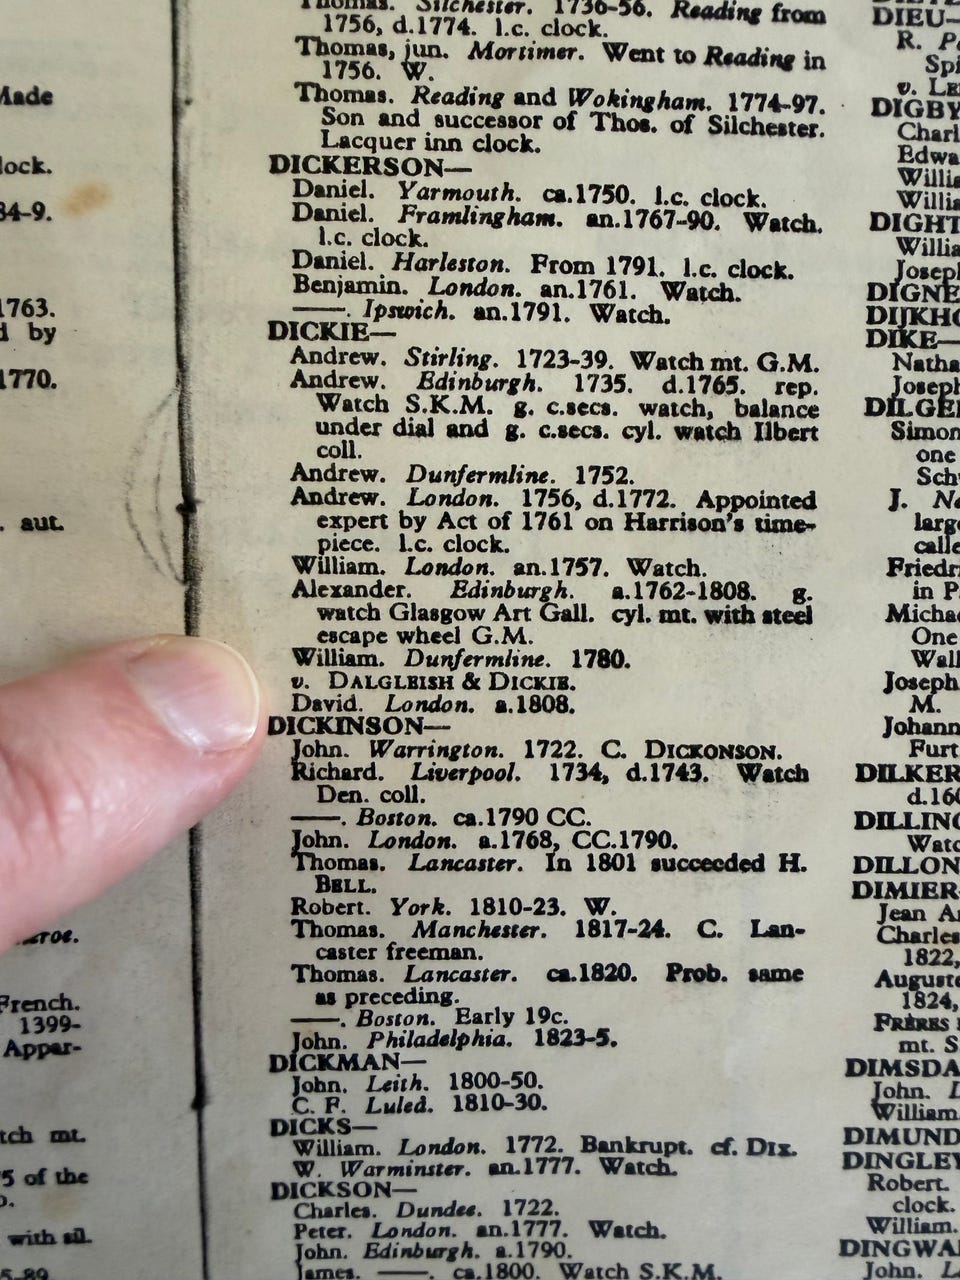 Made
lock.
84-9.
1763.
d by
1770.
. aut.
French.
1399-
Appar-
tch mt.
5 of the
with sil.
5-89
Thomas. Silchester. 1736-56. Reading from
1756, d.1774. l.c. clock.
Thomas, jun. Mortimer. Went to Reading in
1756. W.
Thomas. Reading and Wokingham. 1774-97.
Son and successor of Thos. of Silchester.
Lacquer inn clock.
DICKERSON—
Daniel. Yarmouth. ca.1750. l.c. clock.
Daniel. Framlingham. an.1767-90. Watch.
l.c. clock.
Daniel. Harleston. From 1791. l.c. clock.
Benjamin. London. an.1761. Watch.
——. Ipswich. an.1791. Watch.
DICKIE—
Andrew. Stirling. 1723-39. Watch mt. G.M.
Andrew. Edinburgh. 1735. d.1765. rep.
Watch S.K.M. g. c.secs. watch, balance
under dial and g. c.secs. cyl. watch Ilbert
coll.
Andrew. Dunfermline. 1752.
Andrew. London. 1756, d.1772. Appointed
expert by Act of 1761 on Harrison's time-
piece. l.c. clock.
William. London. an.1757. Watch.
Alexander. Edinburgh. a.1762-1808. g.
watch Glasgow Art Gall. cyl. mt. with steel
escape wheel G.M.
William. Dunfermline. 1780.
v. DALGLEISH & DICKIE.
David. London. a.1808.
DICKINSON—
John. Warrington. 1722. C. DICKONSON.
Richard. Liverpool. 1734, d.1743. Watch
Den. coll.
——. Boston. ca.1790 CC.
John. London. a.1768, CC.1790.
Thomas. Lancaster. In 1801 succeeded H.
BELL.
Robert. York. 1810-23. W.
Thomas. Manchester. 1817-24. C. Lan-
caster freeman.
Thomas. Lancaster. ca.1820. Prob. same
as preceding.
——. Boston. Early 19c.
John. Philadelphia. 1823-5.
DICKMAN—
John. Leith. 1800-50.
C. F. Luled. 1810-30.
DICKS—
William. London. 1772. Bankrupt. cf. DIX.
W. Warminster. an.1777. Watch.
DICKSON—
Charles. Dundee. 1722.
Peter. London. an.1777. Watch.
John. Edinburgh. a.1790.
James. ——. ca.1800. Watch S.K.M.
DIEU—
R. P
Spi
v. LE
DIGBY
Charl
Edwa
Willia
Willia
DIGHT
Willia
Joseph
DIGNE
DIJKHO
DIKE—
Natha
Joseph
DILGE
Simon
one
Sch
J. Ne
large
calle
Friedri
in P
Michae
One
Wall
Joseph
M.
Johann
Furt
DILKER
d.160
DILLING
Watc
DILLON
DIMIER
Jean An
Charles
1822,
Auguste
1824,
FRÈRES
mt. S
DIMSDA
John. L
William.
DIMUND
DINGLEY
Robert.
clock.
William.
DINGWA
John. L